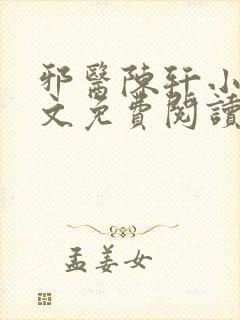 邪醫陳軒小
文免費閱讀
孟姜女